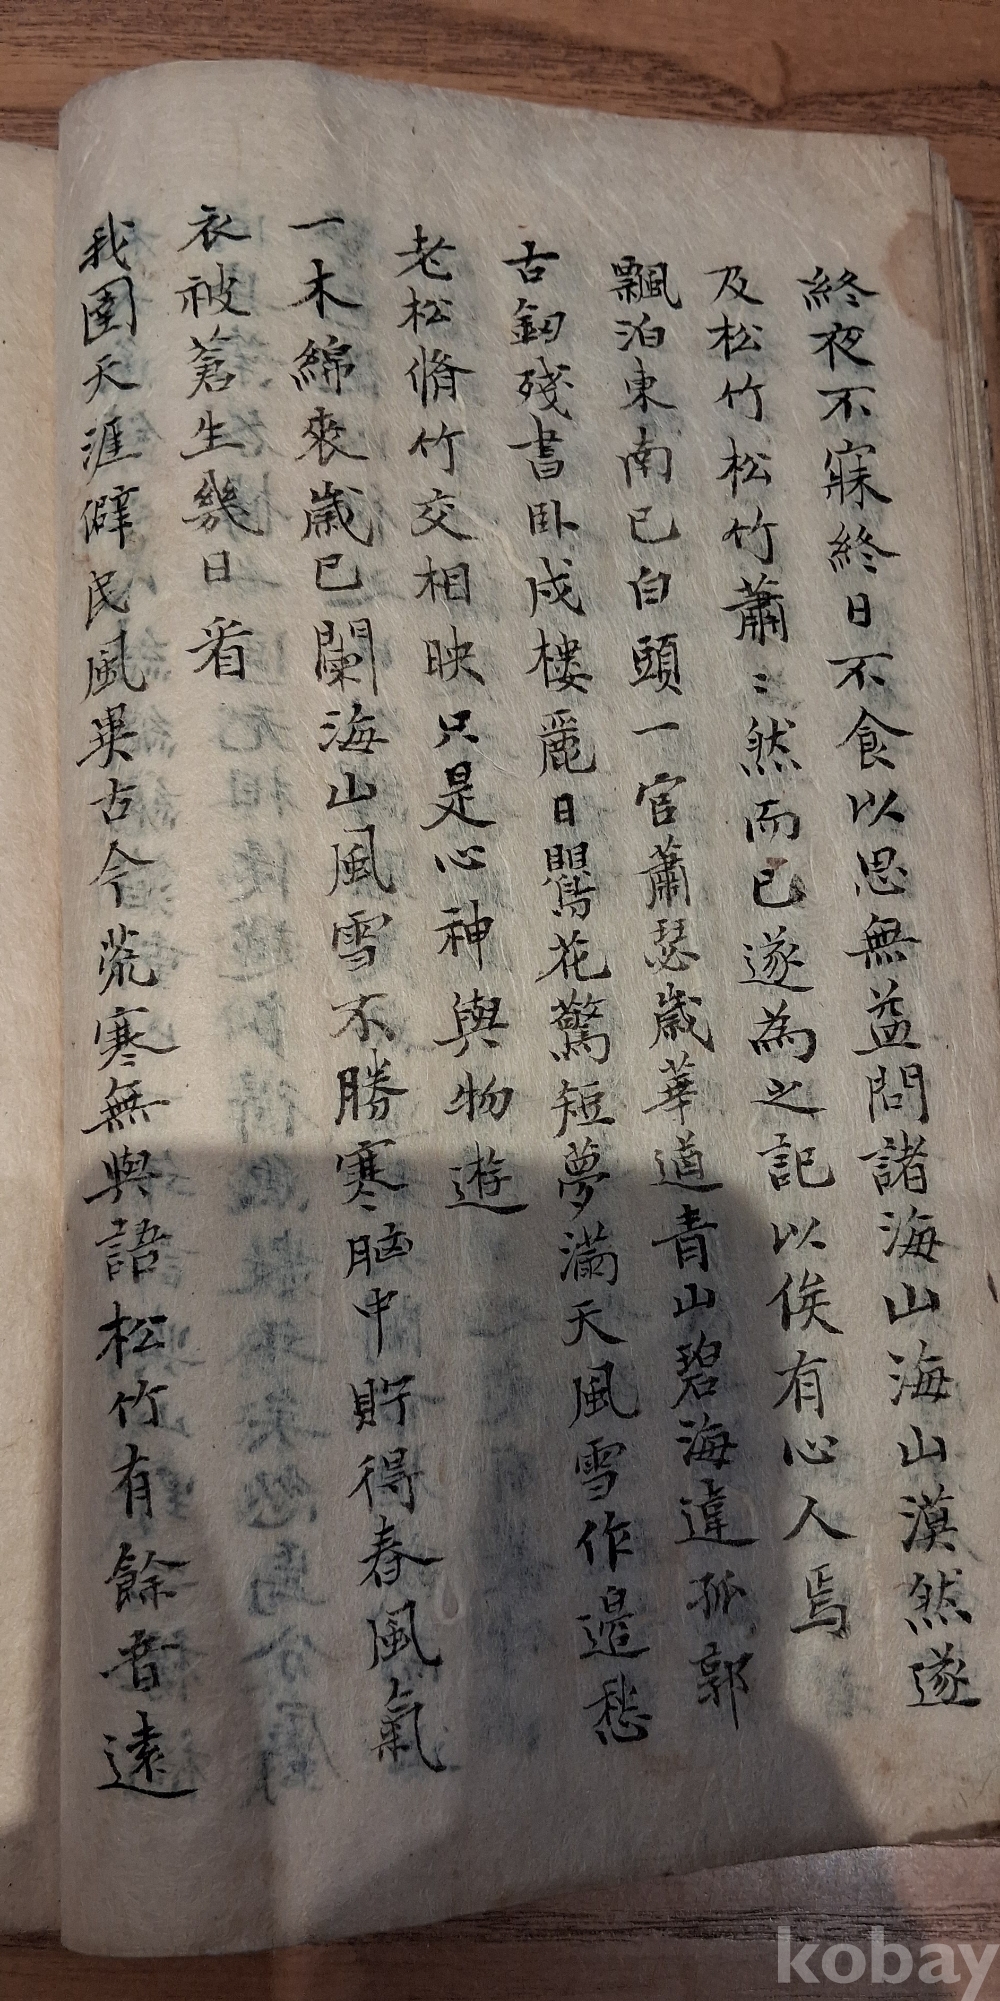 終夜不寐終日不食以思無益問諸海山海山漠然遂
及松竹松竹蕭〻然而已遂為之記以俟有心人焉
飄泊東南已白頭一官蕭瑟歲華遒青山碧海違孤郭
古釰殘書臥戍樓麗日鸎花驚短夢滿天風雪作邉愁
老松脩竹交相映只是心神與物遊
一木綿裘歲已闌海山風雪不勝寒腦中貯得春風氣
衣被蒼生幾日看
我圉天涯僻民風異古今荒寒無與語松竹有餘音遠
kobay